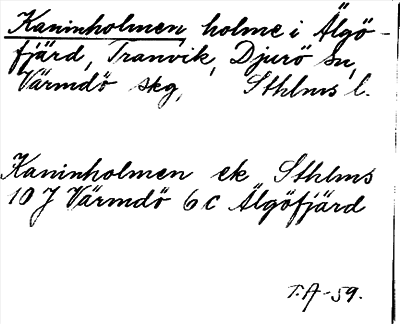 Kaninholmen holme i Älgö-
fjärd, Tranvik, Djurö sn,
Värmdö skg, Sthlms l.
Kaninholmen ek Sthlms
10 J Värmdö 6 c Älgöfjärd
T.A-59.